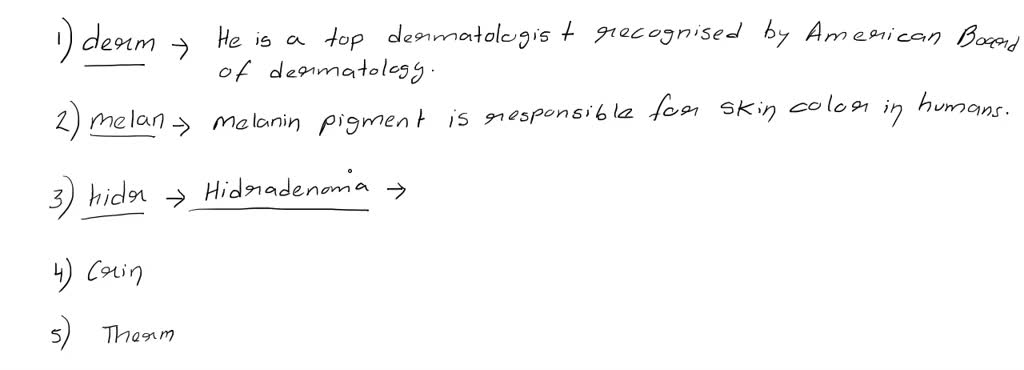 1) derm → He is a top dermatologist recognised by American Board
of dermatology.
2) melan → melanin pigment is responsible for skin color in humans.
3) hidr → Hidradenoma →
4) Crin
5) Therm